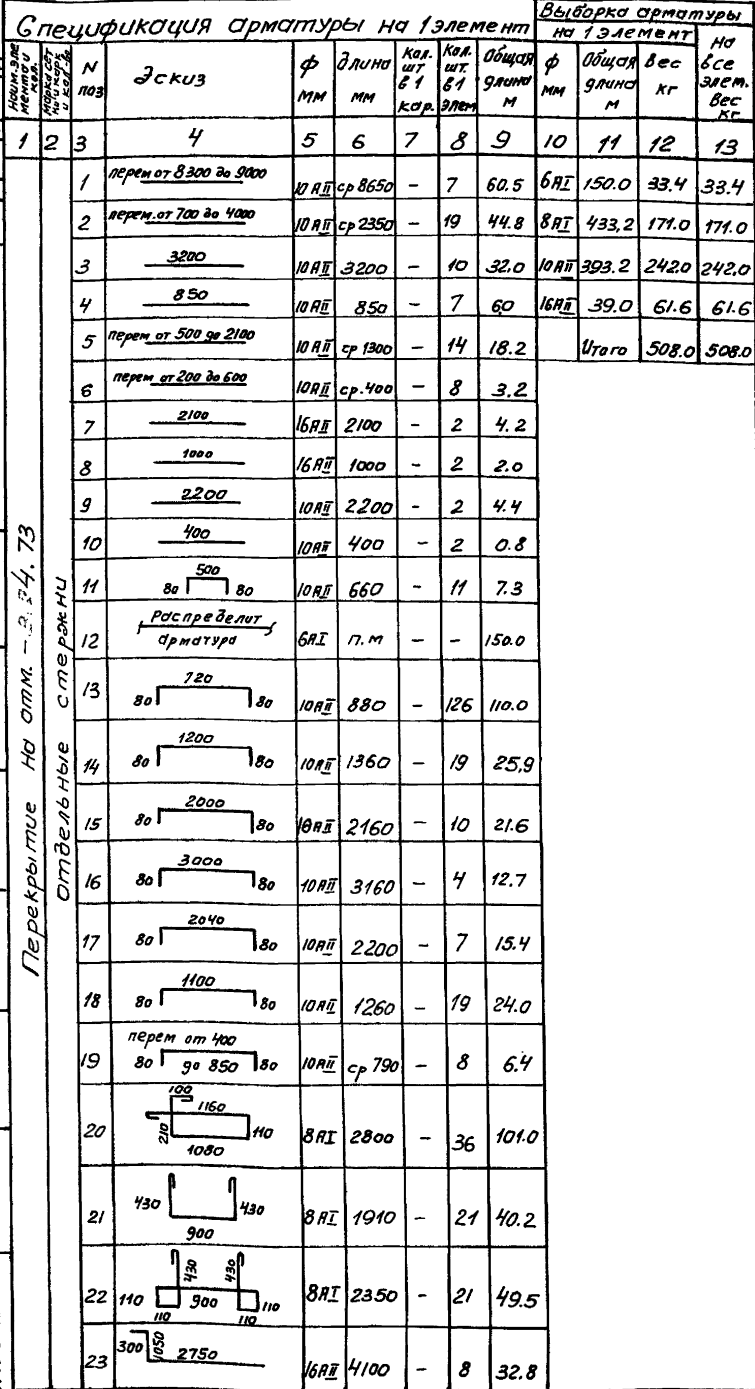 Спецификация арматуры на 1 элемент
Выборка арматуры
на 1 элемент
На все элем. Вес кг
Наим. эле мента и кол.
Марка сет
N поз
Эскиз
ф мм
длина мм
Кол. шт в 1 кар.
Кол. шт. в 1 элем
Общая длина м
ф мм
Общая длина м
Вес кг
1 2 3 4 5 6 7 8 9 10 11 12 13
Перекрытие на отм.
отдельные стержни
1 перем от 8300 до 9000 10АII ср 8650 – 7 60.5 6АI 150.0 33.4 33.4
2 перем. от 700 до 4000 10АII ср 2350 – 19 44.8 8АI 433,2 171.0 171.0
3 3200 10АII 3200 – 10 32.0 10АII 393.2 242.0 242.0
4 850 10АII 850 – 7 60 16АII 39.0 61.6 61.6
5 перем от 500 до 2100 10АII ср 1300 – 14 18.2 Итого 508.0 508.0
6 перем от 200 до 600 10АII ср. 400 – 8 3.2
7 2100 16АII 2100 – 2 4.2
8 1000 16АII 1000 – 2 2.0
9 2200 10АII 2200 – 2 4.4
10 400 10АII 400 – 2 0.8
11 80 500 80 10АII 660 – 11 7.3
12 Распределит арматура 6АI п.м – – 150.0
13 80 720 80 10АII 880 – 126 110.0
14 80 1200 80 10АII 1360 – 19 25,9
15 80 2000 80 10АII 2160 – 10 21.6
16 80 3000 80 10АII 3160 – 4 12.7
17 80 2040 80 10АII 2200 – 7 15.4
18 80 1100 80 10АII 1260 – 19 24.0
19 перем от 400 до 850 80 80 10АII ср 790 – 8 6.4
20 100 1160 210 110 1080 8АI 2800 – 36 101.0
21 430 430 900 8АI 1910 – 21 40.2
22 430 430 110 900 110 110 110 8АI 2350 – 21 49.5
23 300 1050 2750 16АII 4100 – 8 32.8